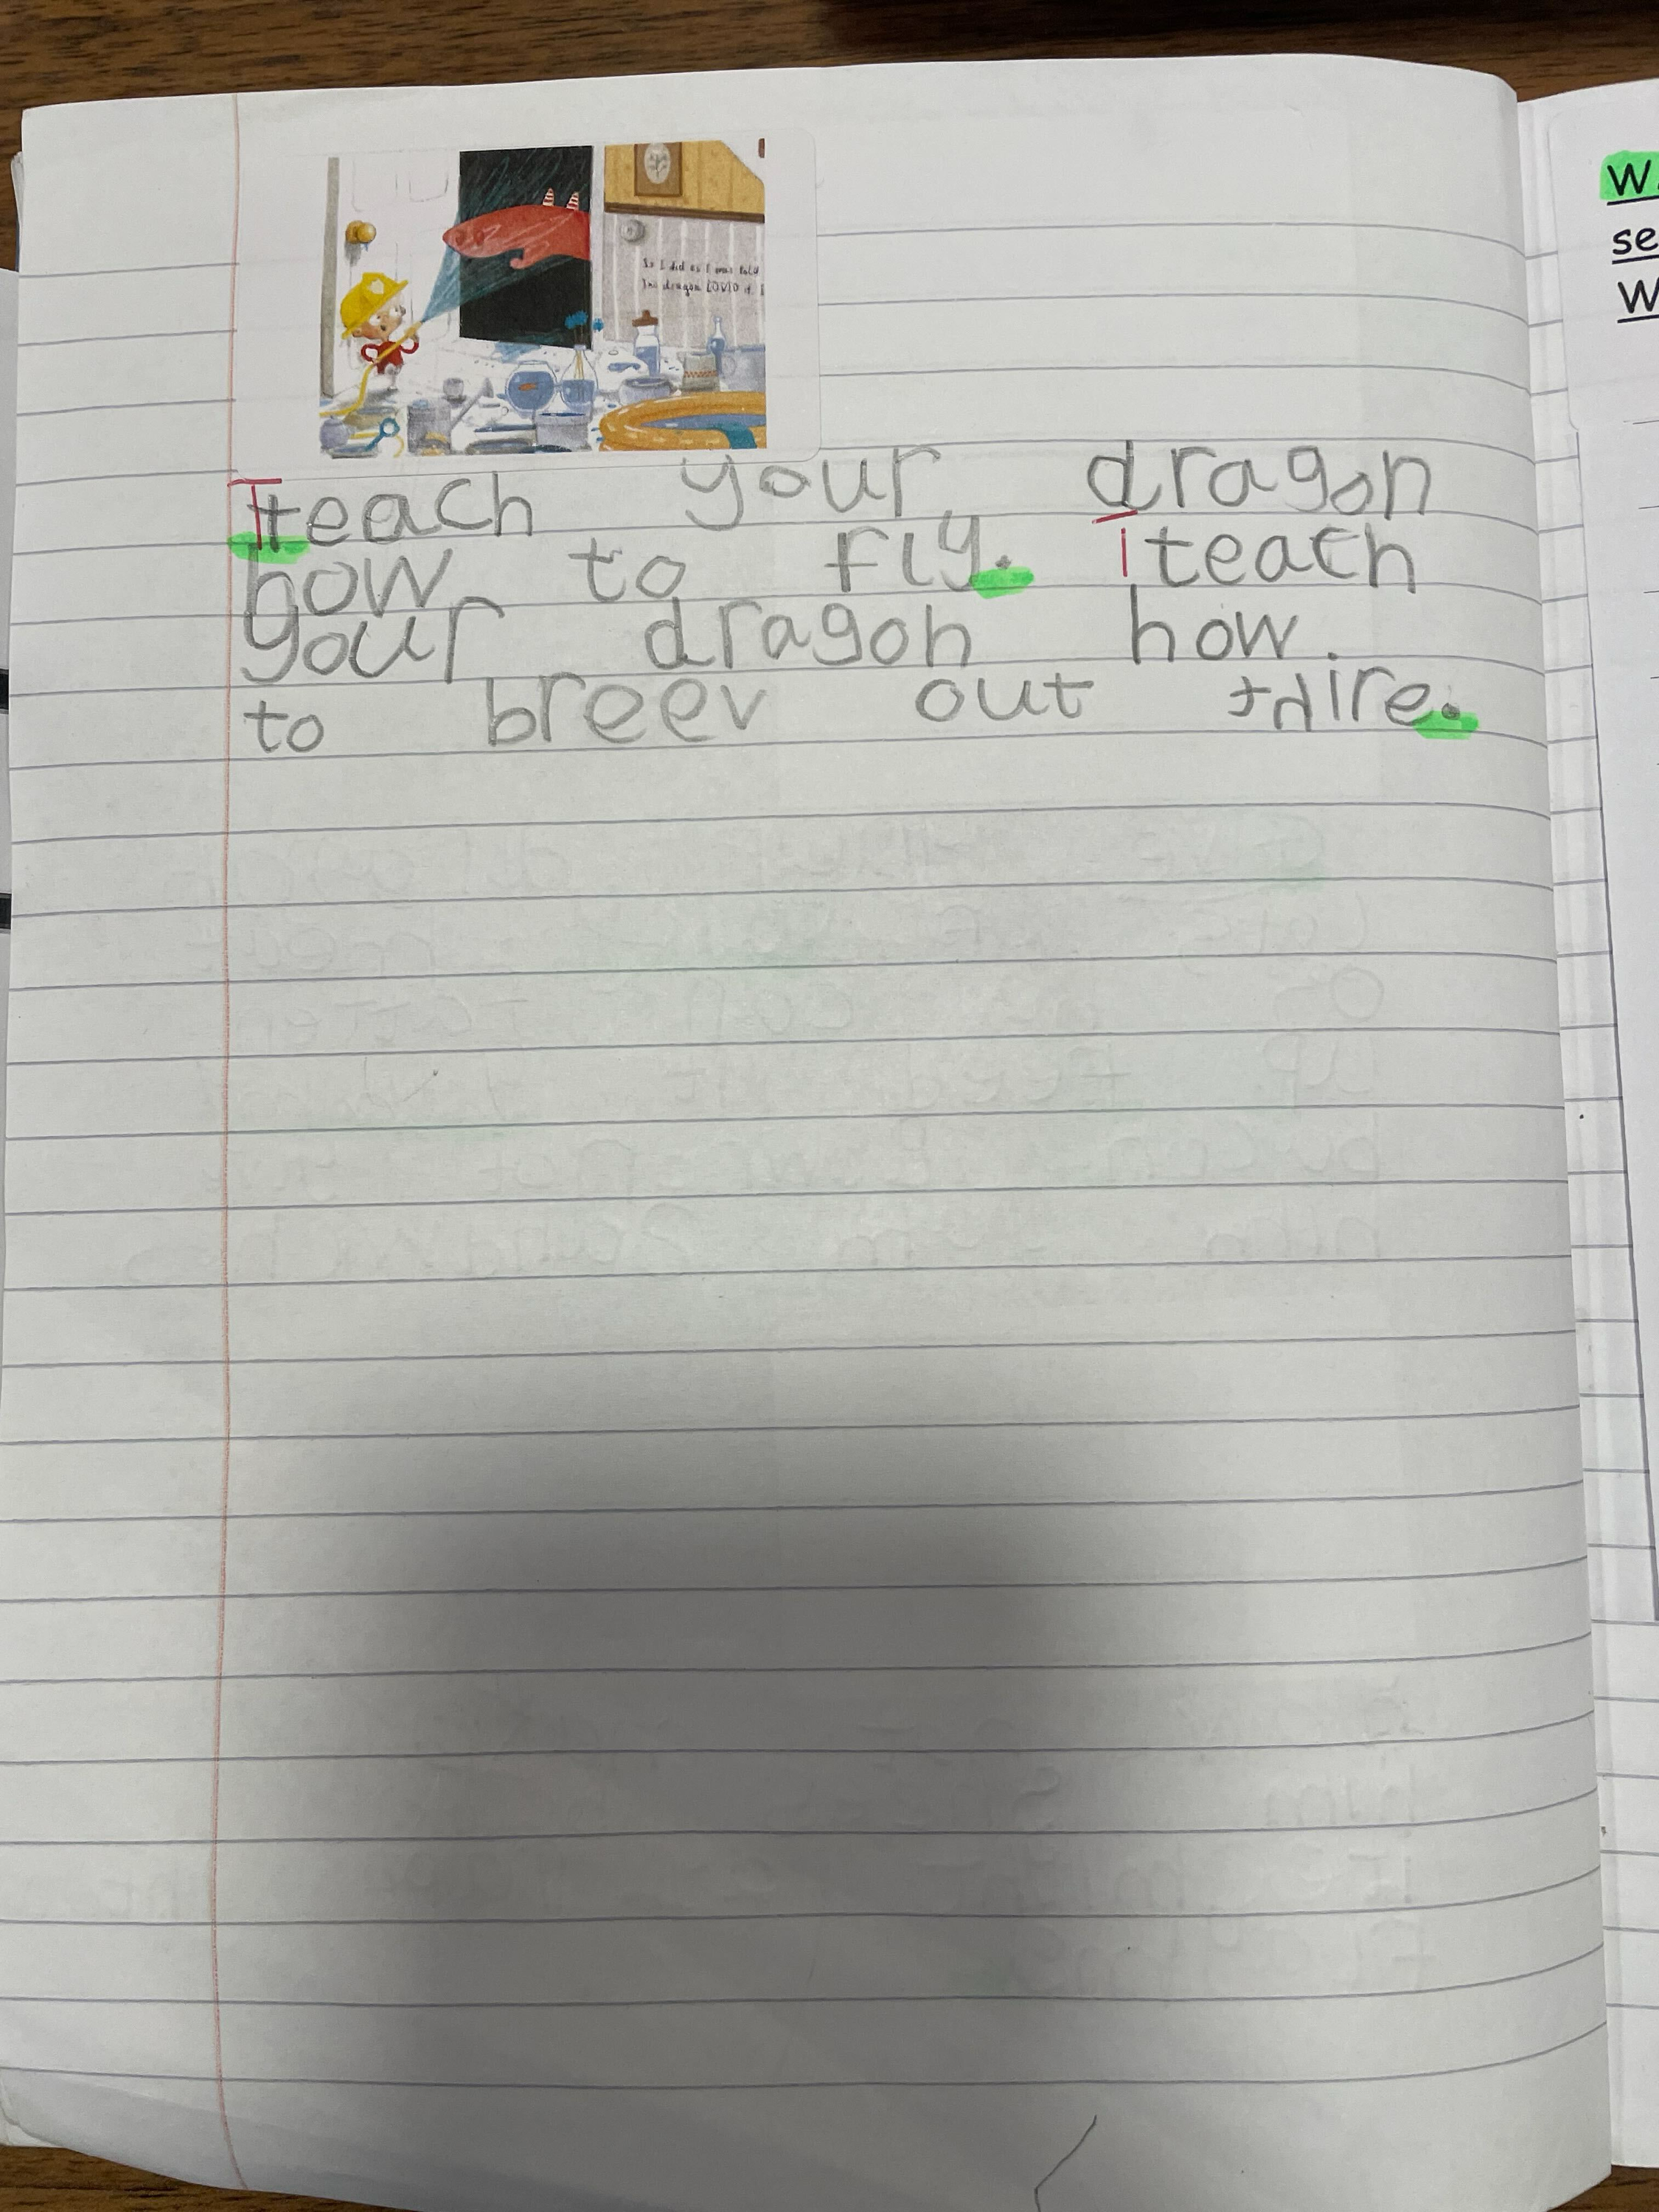 So I did as I was told
The dragon LOVED it. I
W
se
W
Tteach your dragon
how to fly. Tteach
your dragon how.
to breev out